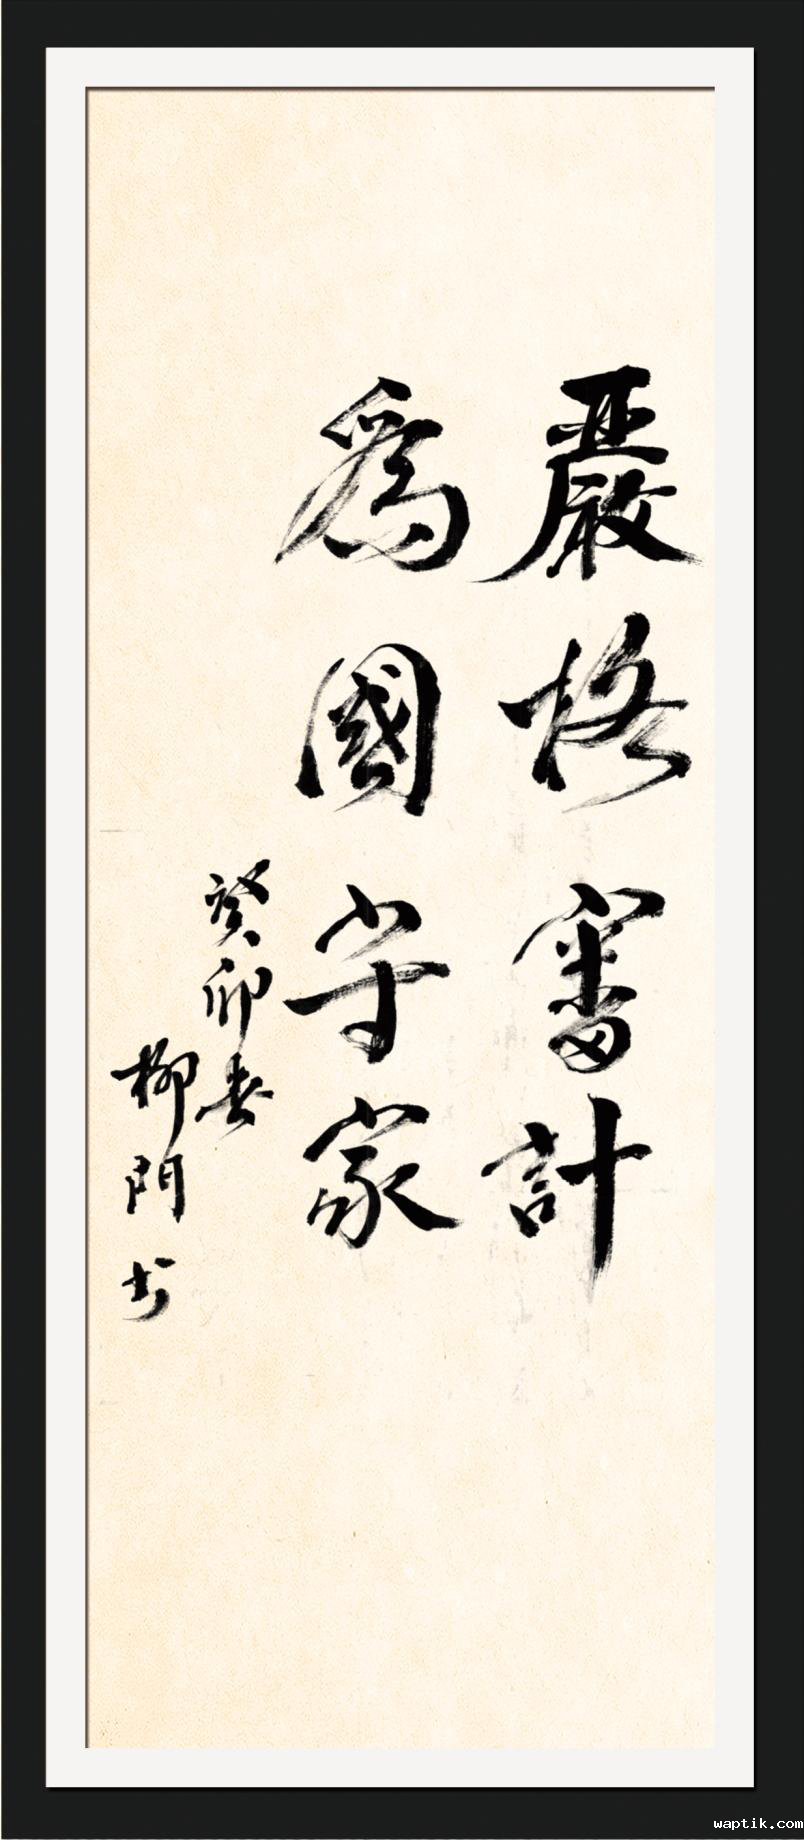 嚴格審計
為國守家
癸卯春
柳門书
waptik.com